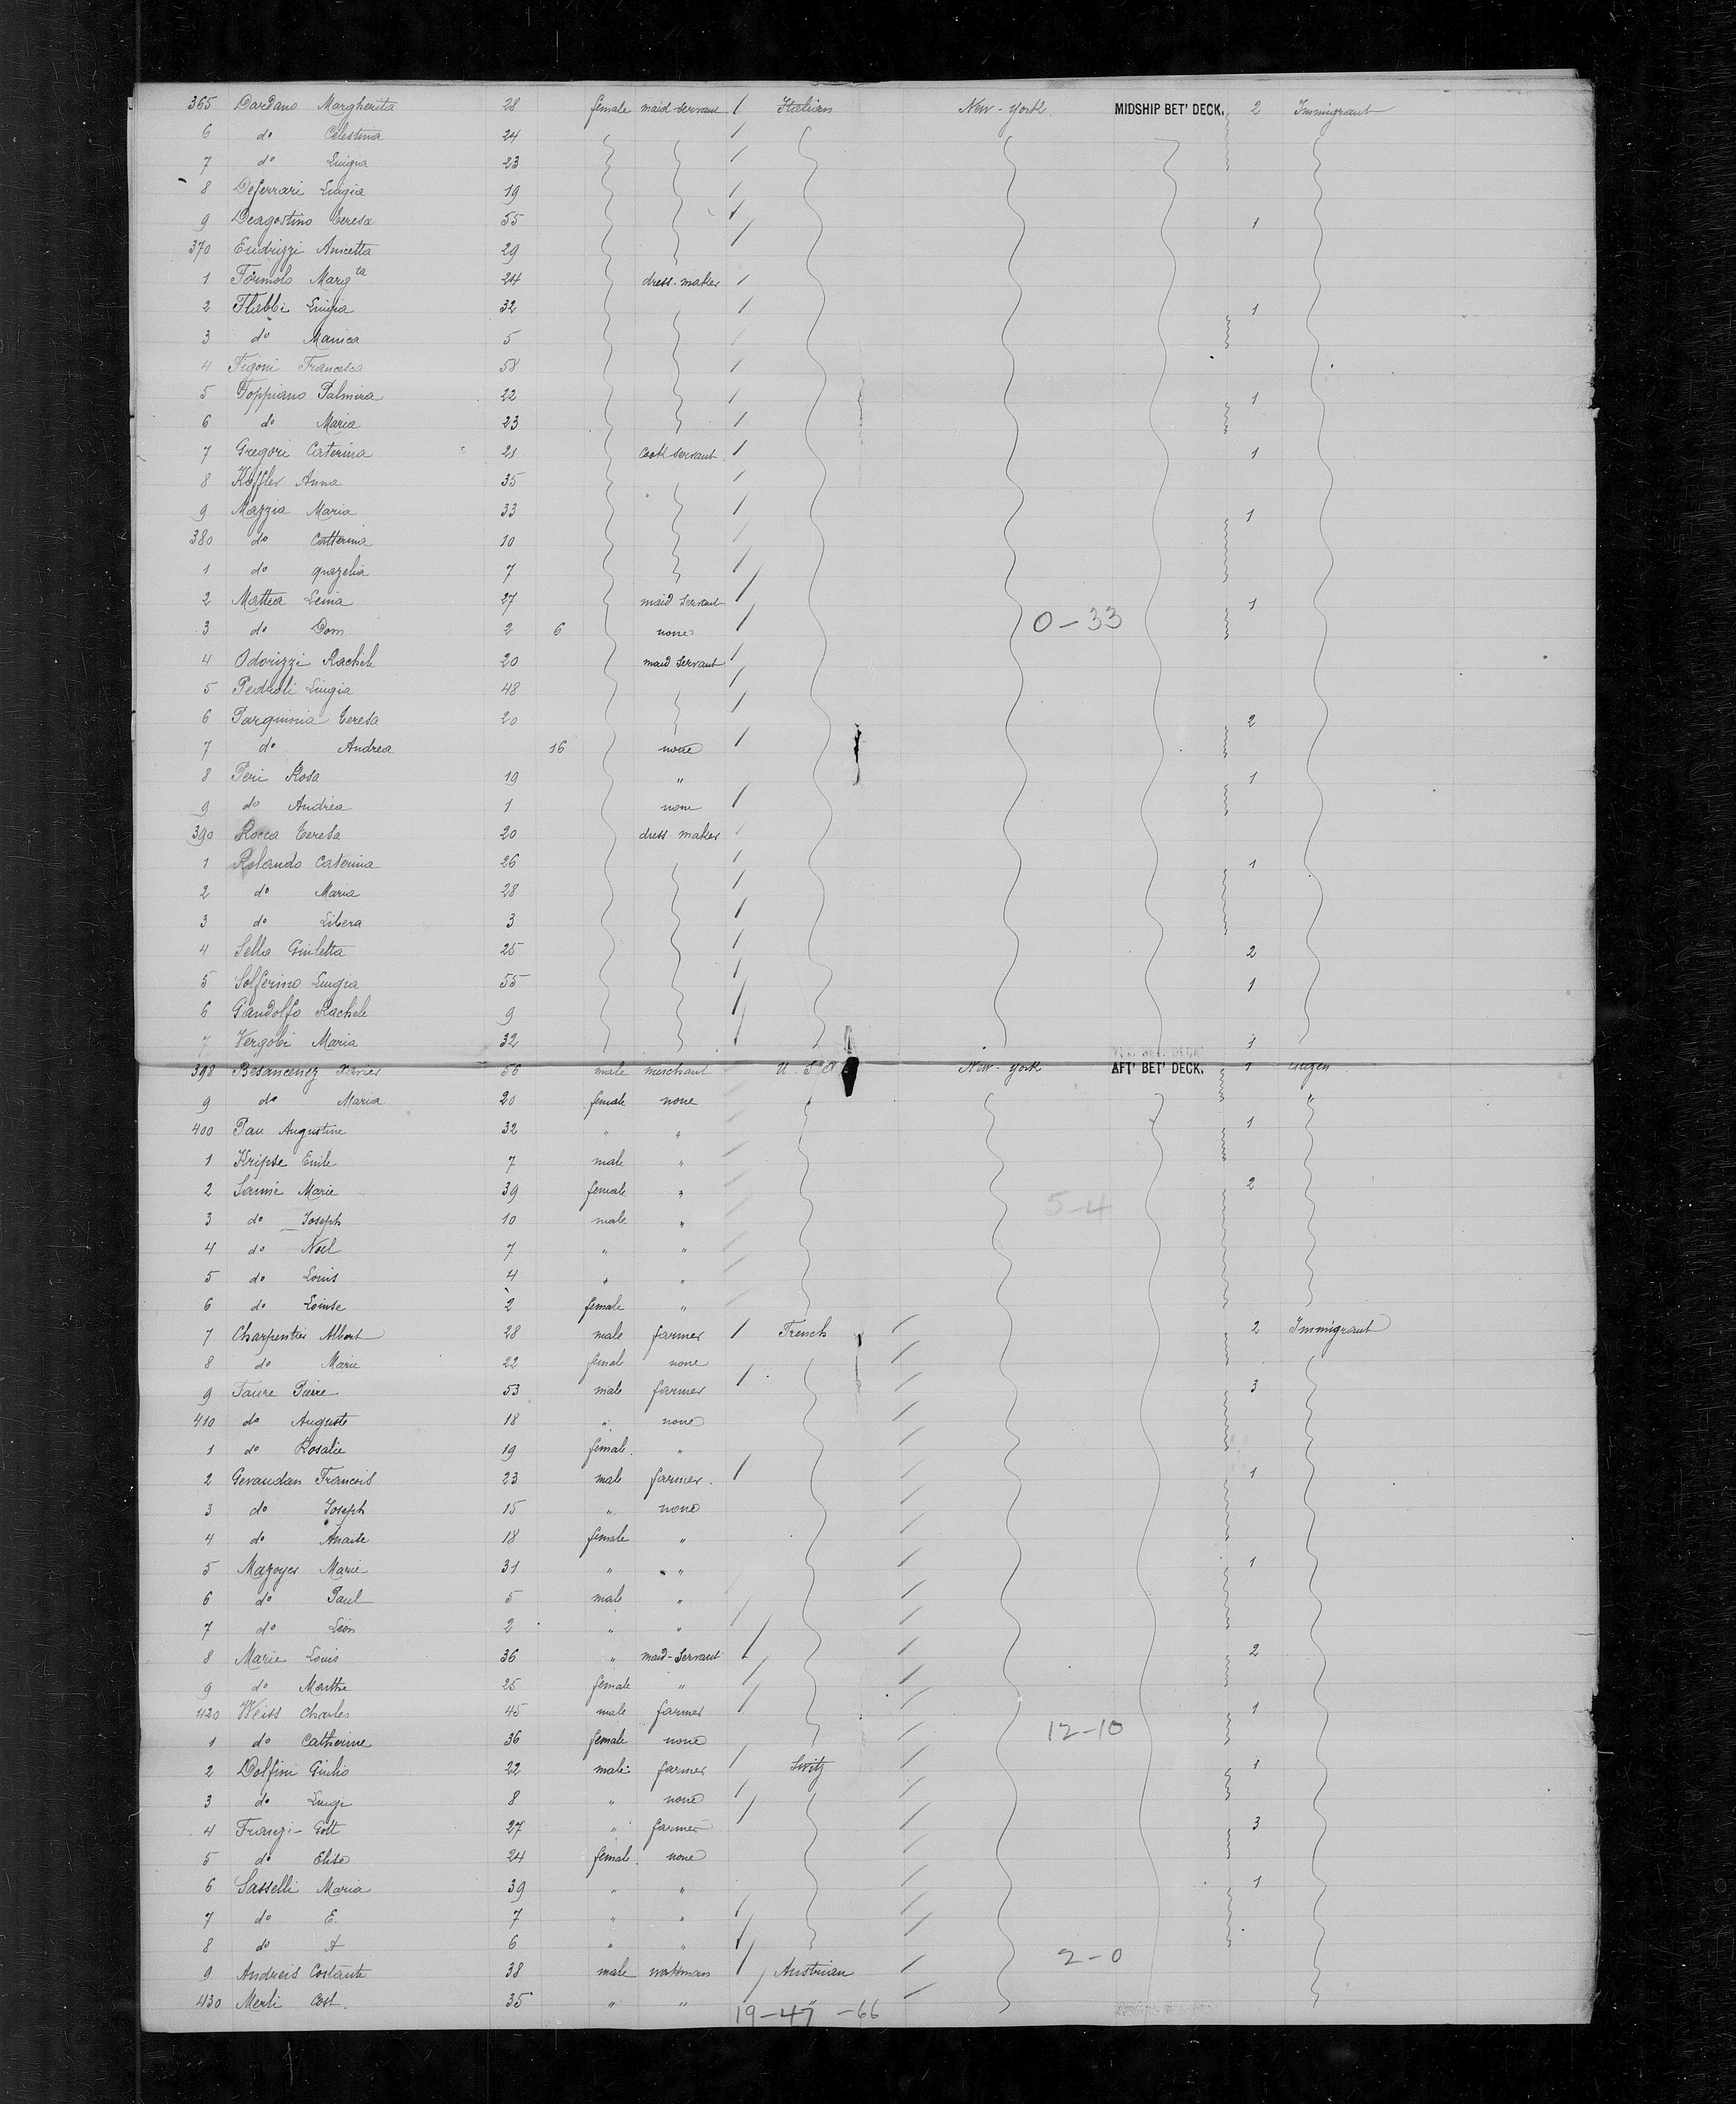 365 Dardano Margherita 28 female maid servant / Italian New-York. MIDSHIP BET' DECK. 2 Immigrant
6 do Celestina 24
7 do Luigia 23
8 Deferrari Luigia 19
9 Deagostino Teresa 55 1
370 Endrizzi Anicetta 29
1 Formolo Marg ta 24 dress-maker
2 Luigia 32 1
3 do 5
4 Figoni Francesca 58
5 Foppiano Palmira 22 1
6 do Maria 23
7 Gregori Caterina 21 Cook servant 1
8 Koffler Anna 35
9 Mazzia Maria 33 1
380 do Catterina 10
1 do 7
2 Mattea 27 maid servant 1
3 do Dom. 2 6 none 0-33
4 Odorizzi Rachele 20 maid servant
5 Pedroli Luigia 48
6 Teresa 20 2
7 do Andrea 16 none
8 Peri Rosa 19 " 1
9 do Andrea 1 none
390 Rocca Teresa 20 dress maker
1 Rolando Caterina 26 1
2 do Maria 28
3 do Libera 3
4 Sella Giuletta 25 2
5 Solferino Luigia 55 1
6 Gandolfo Rachele 9
7 Vergobi Maria 32 3
398 Besancenez Xavier 56 male merchant U.S.A. New-york AFT' BET' DECK. 1 citizen
9 do Maria 20 female none "
400 Pau Augustine 32 " " 1
1 Kripse Emile 7 male "
2 Marie 39 female " 2
3 do Joseph 10 male " 5-4
4 do Noel 7 " "
5 do Louis 4 " "
6 do Louise 2 female "
7 Charpentier Albert 28 male farmer French 2 Immigrant
8 do Marie 22 female none
9 Faure Pierre 53 male farmer 3
410 do Auguste 18 " none
1 do Rosalie 19 female "
2 Gevaudan Francois 23 male farmer 1
3 do Joseph 15 " none
4 do Anaise 18 female "
5 Mazoyer Marie 31 " " 1
6 do Paul 5 male "
7 do Leon 2 " "
8 Marie Louis 36 " maid-servant 2
9 do Marthe 25 female "
420 Weiss Charles 45 male farmer 1
1 do Catherine 36 female none 12-10
2 Dolfini Giulio 22 male farmer Switz 1
3 do Luigi 8 " none
4 Franzi Gott 27 " farmer 3
5 do Elise 24 female none
6 Sasselli Maria 39 " " 1
7 do E. 7 " "
8 do A 6 " "
9 Andreis Costante 38 male workman Austrian 2-0
430 Merli Cost. 35 " " "
19-47-66